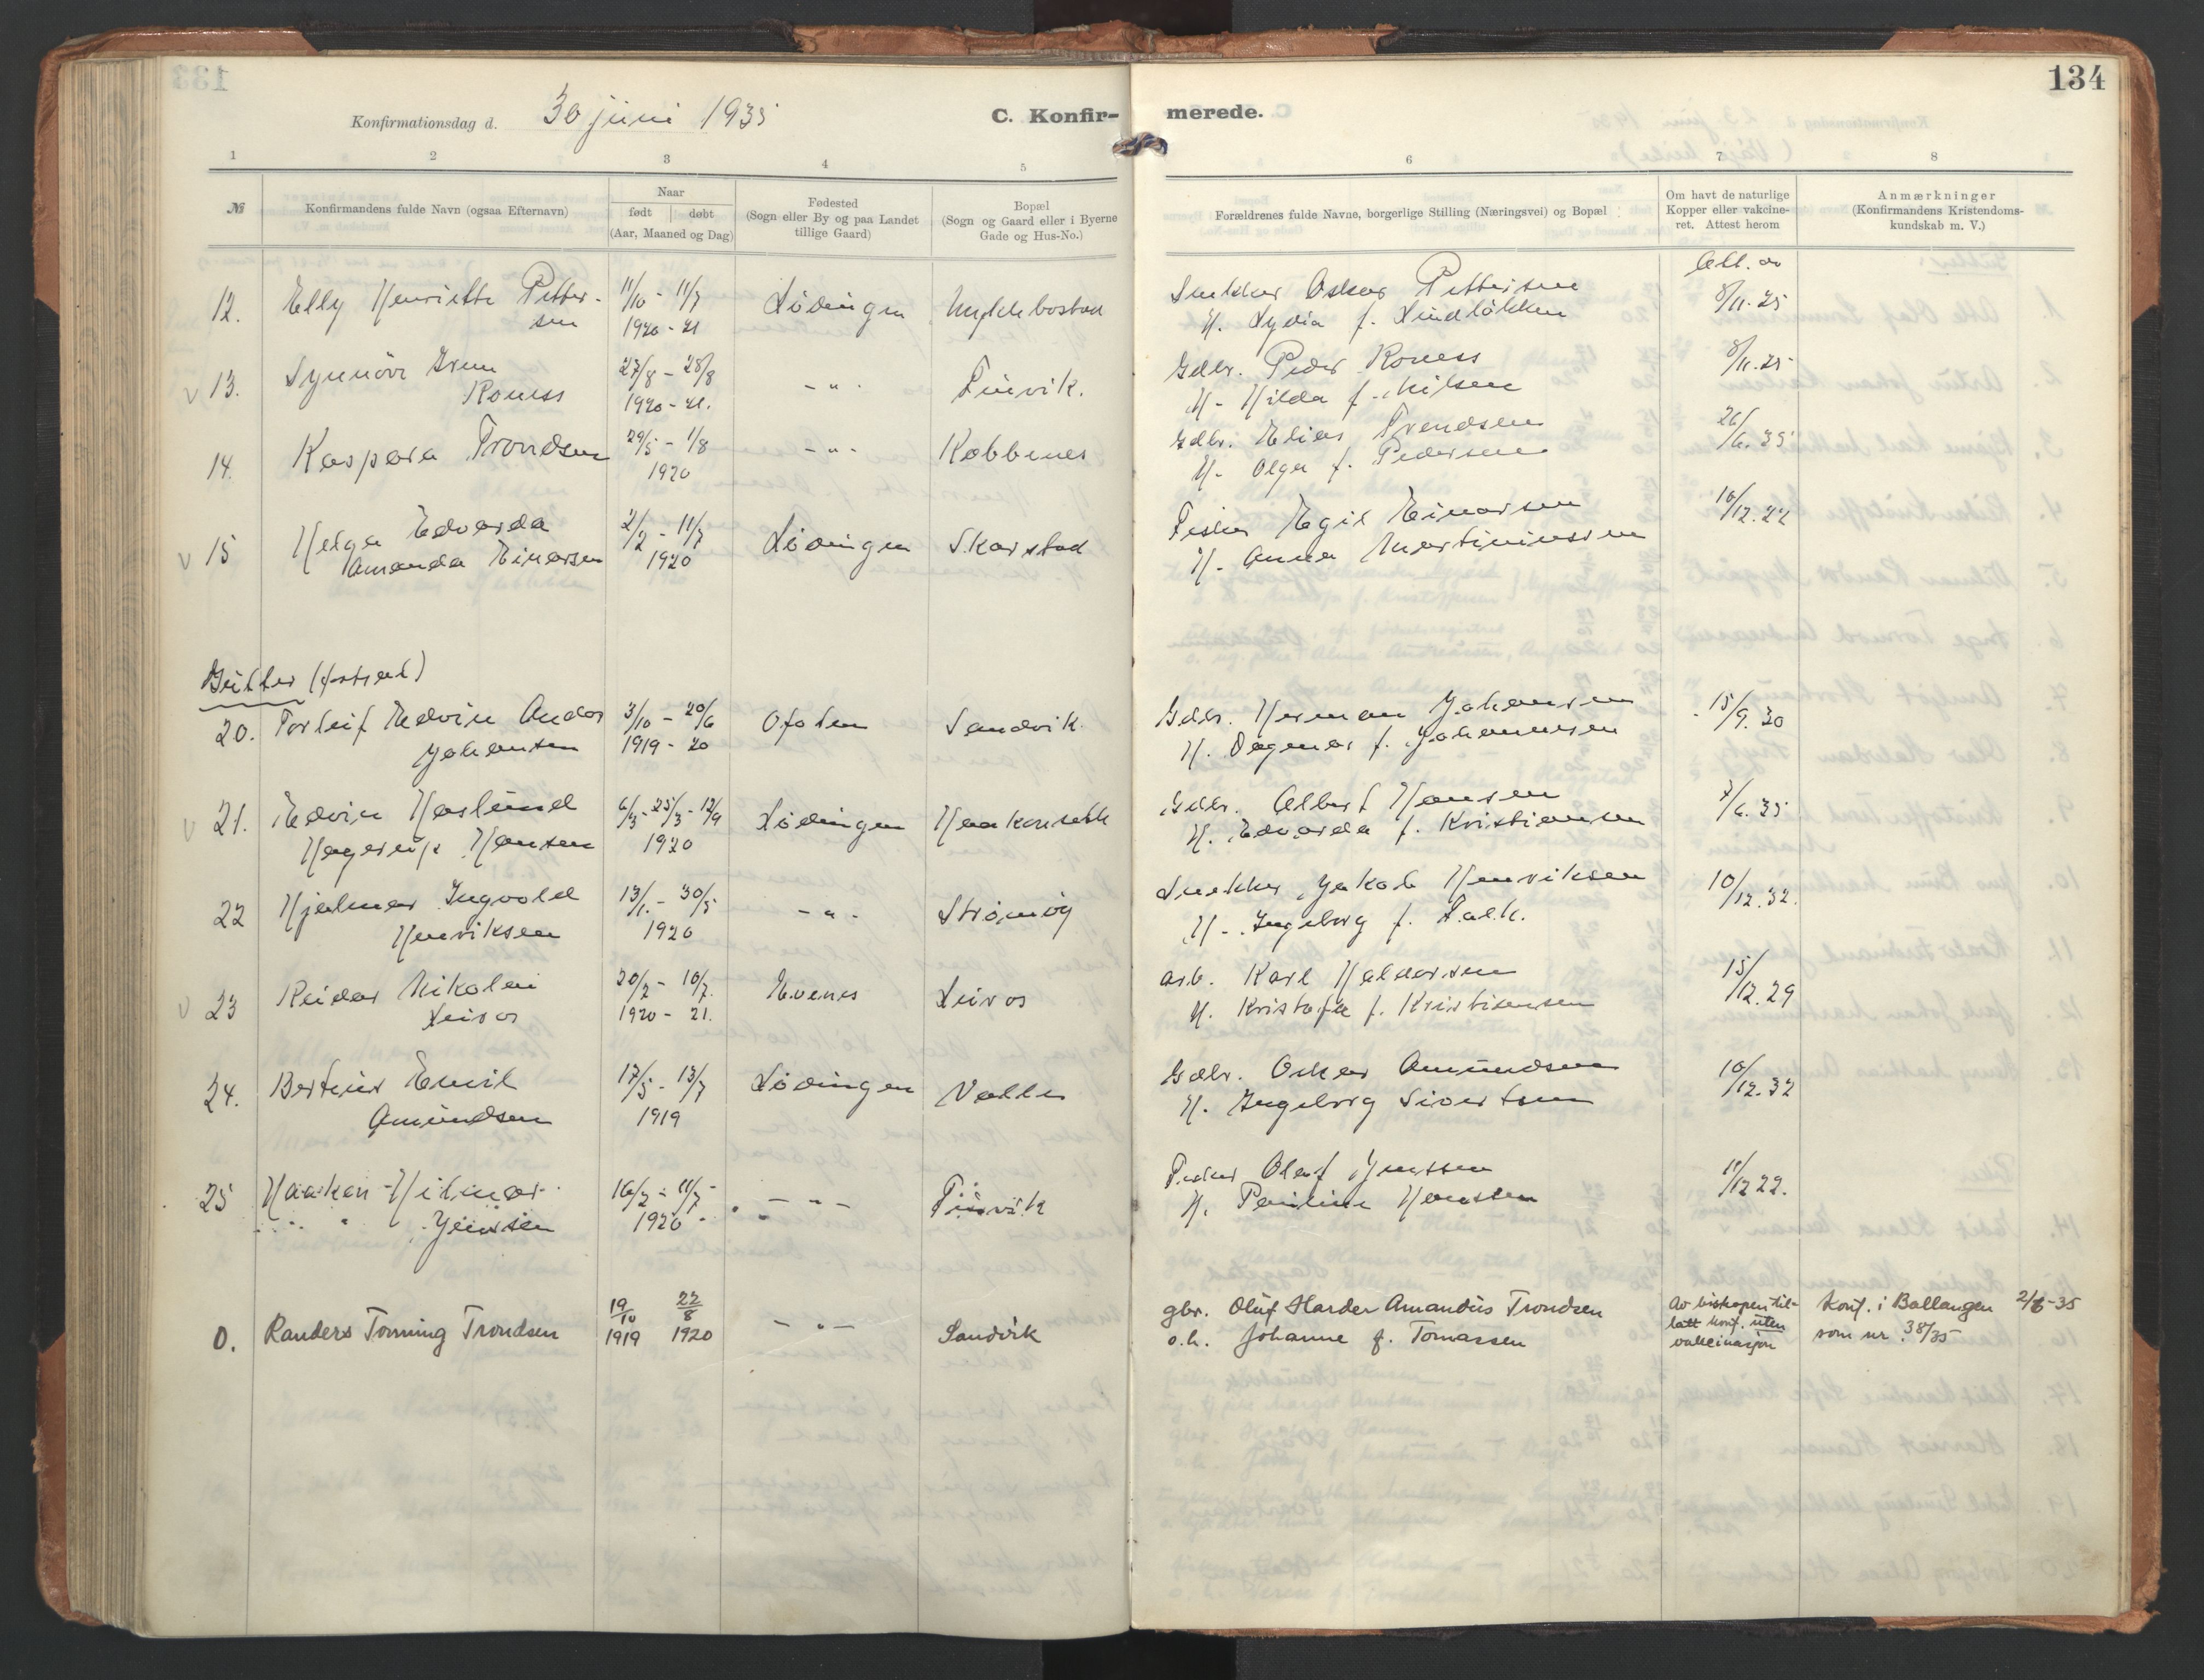 134
Konfirmationsdag d. 30 juni 1935
C. Konfirmerede.
1 2 3 4 5 6 7 8
№
Konfirmandens fulde Navn (ogsaa Efternavn)
Naar
født døbt
(Aar, Maaned og Dag)
Fødested
(Sogn eller By og paa Landet
tillige Gaard)
Bopæl
(Sogn og Gaard eller i Byerne
Gade og Hus-No.)
Forældrenes fulde Navne, borgerlige Stilling (Næringsvei) og Bopæl
Om havt de naturlige
Kopper eller vakcine-
ret. Attest herom
Anmærkninger
(Konfirmandens Kristendoms-
kundskab m. V.)
12. Elly Henriette Petter- 11/10 - 11/7 Lødingen Snekker Oskar Pettersen Att. av 8/11.25
sen 1920 - 21 H. Lydia f. Lindløkken
v 13. Synnøve Roness 27/8 - 28/8 - " - Finvik. Gdbr. Peder Roness 8/11.25
1920 - 21. H. Hilda f. Nilsen
14. Kaspara Trondsen 29/5 - 1/8 - " - Kobbenes Gdbr. Elias Trondsen 26/6.35
1920 H. Olga f. Pedersen
v 15 Helga Edvarda 2/2 - 11/7 Lødingen Skarstad Fisker Egil Einarsen 10/12.22
Amanda Einarsen 1920 H. Anna Martiniussen
Gutter (fortsat)
20. Torleif Edvin Andor 3/10 - 20/6 Ofoten Sandvik Gdbr. Herman Johansen 15/9.30
Johansen 1919 - 20 H. Dagmar f. Johannesen
v 21. Edvin Haslund 6/3 - 25/3 - 12/9 Lødingen Gdbr. Albert Hansen 7/6.35
Hagerup Hansen 1920 H. Edvarda f. Kristiansen
22 Hjalmar Ingvold 13/1. - 30/5 - " - Snekker Jakob Henriksen 10/12.32.
Henriksen 1920 H. Ingeborg f. Falk.
v 23 Reidar Nikolai 20/2 - 10/7. Evenes Leiros arb. Karl Haldorsen 15/12.29
Leiros 1920 - 21. H. Kristofa f. Kristiansen
24. Bertius Emil 17/5 - 13/7 Lødingen Valle Gdbr. Oskar Amundsen 10/12.32
Amundsen 1919 H. Ingeborg Sivertsen
25 Haakon Hilmar 16/2 - 11/7 - " - Finvik Fisker Olaf Jenssen 11/12 22.
Jenssen 1920 H. Pauline Hansen
0. Randers Tonning Trondsen 19/10 1919 22/8 1920 - " - Sandvik gbr. Oluf Harder Amandus Trondsen Av biskopen til- Konf. i Ballangen 2/6-35
o.h. Johanne f. Tomassen latt konf. uten som nr. 38/35
vakcinasjon